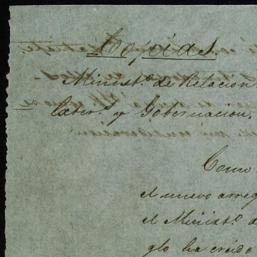 Copias
Minist.o de Relacion.
y Gobernacion.
Como
el nuevo arreg
el Minist.o d
glo ha creido